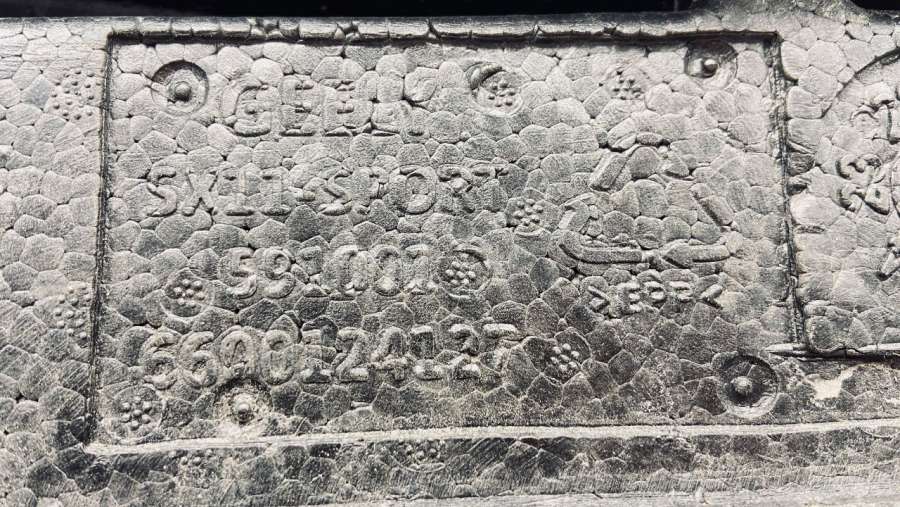 GEELY
SX11-SPORT
591001
6600124127